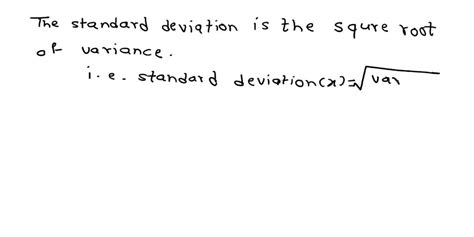 The standard deviation is the squre root
of variance.
i. e. standard deviation(x)=√var